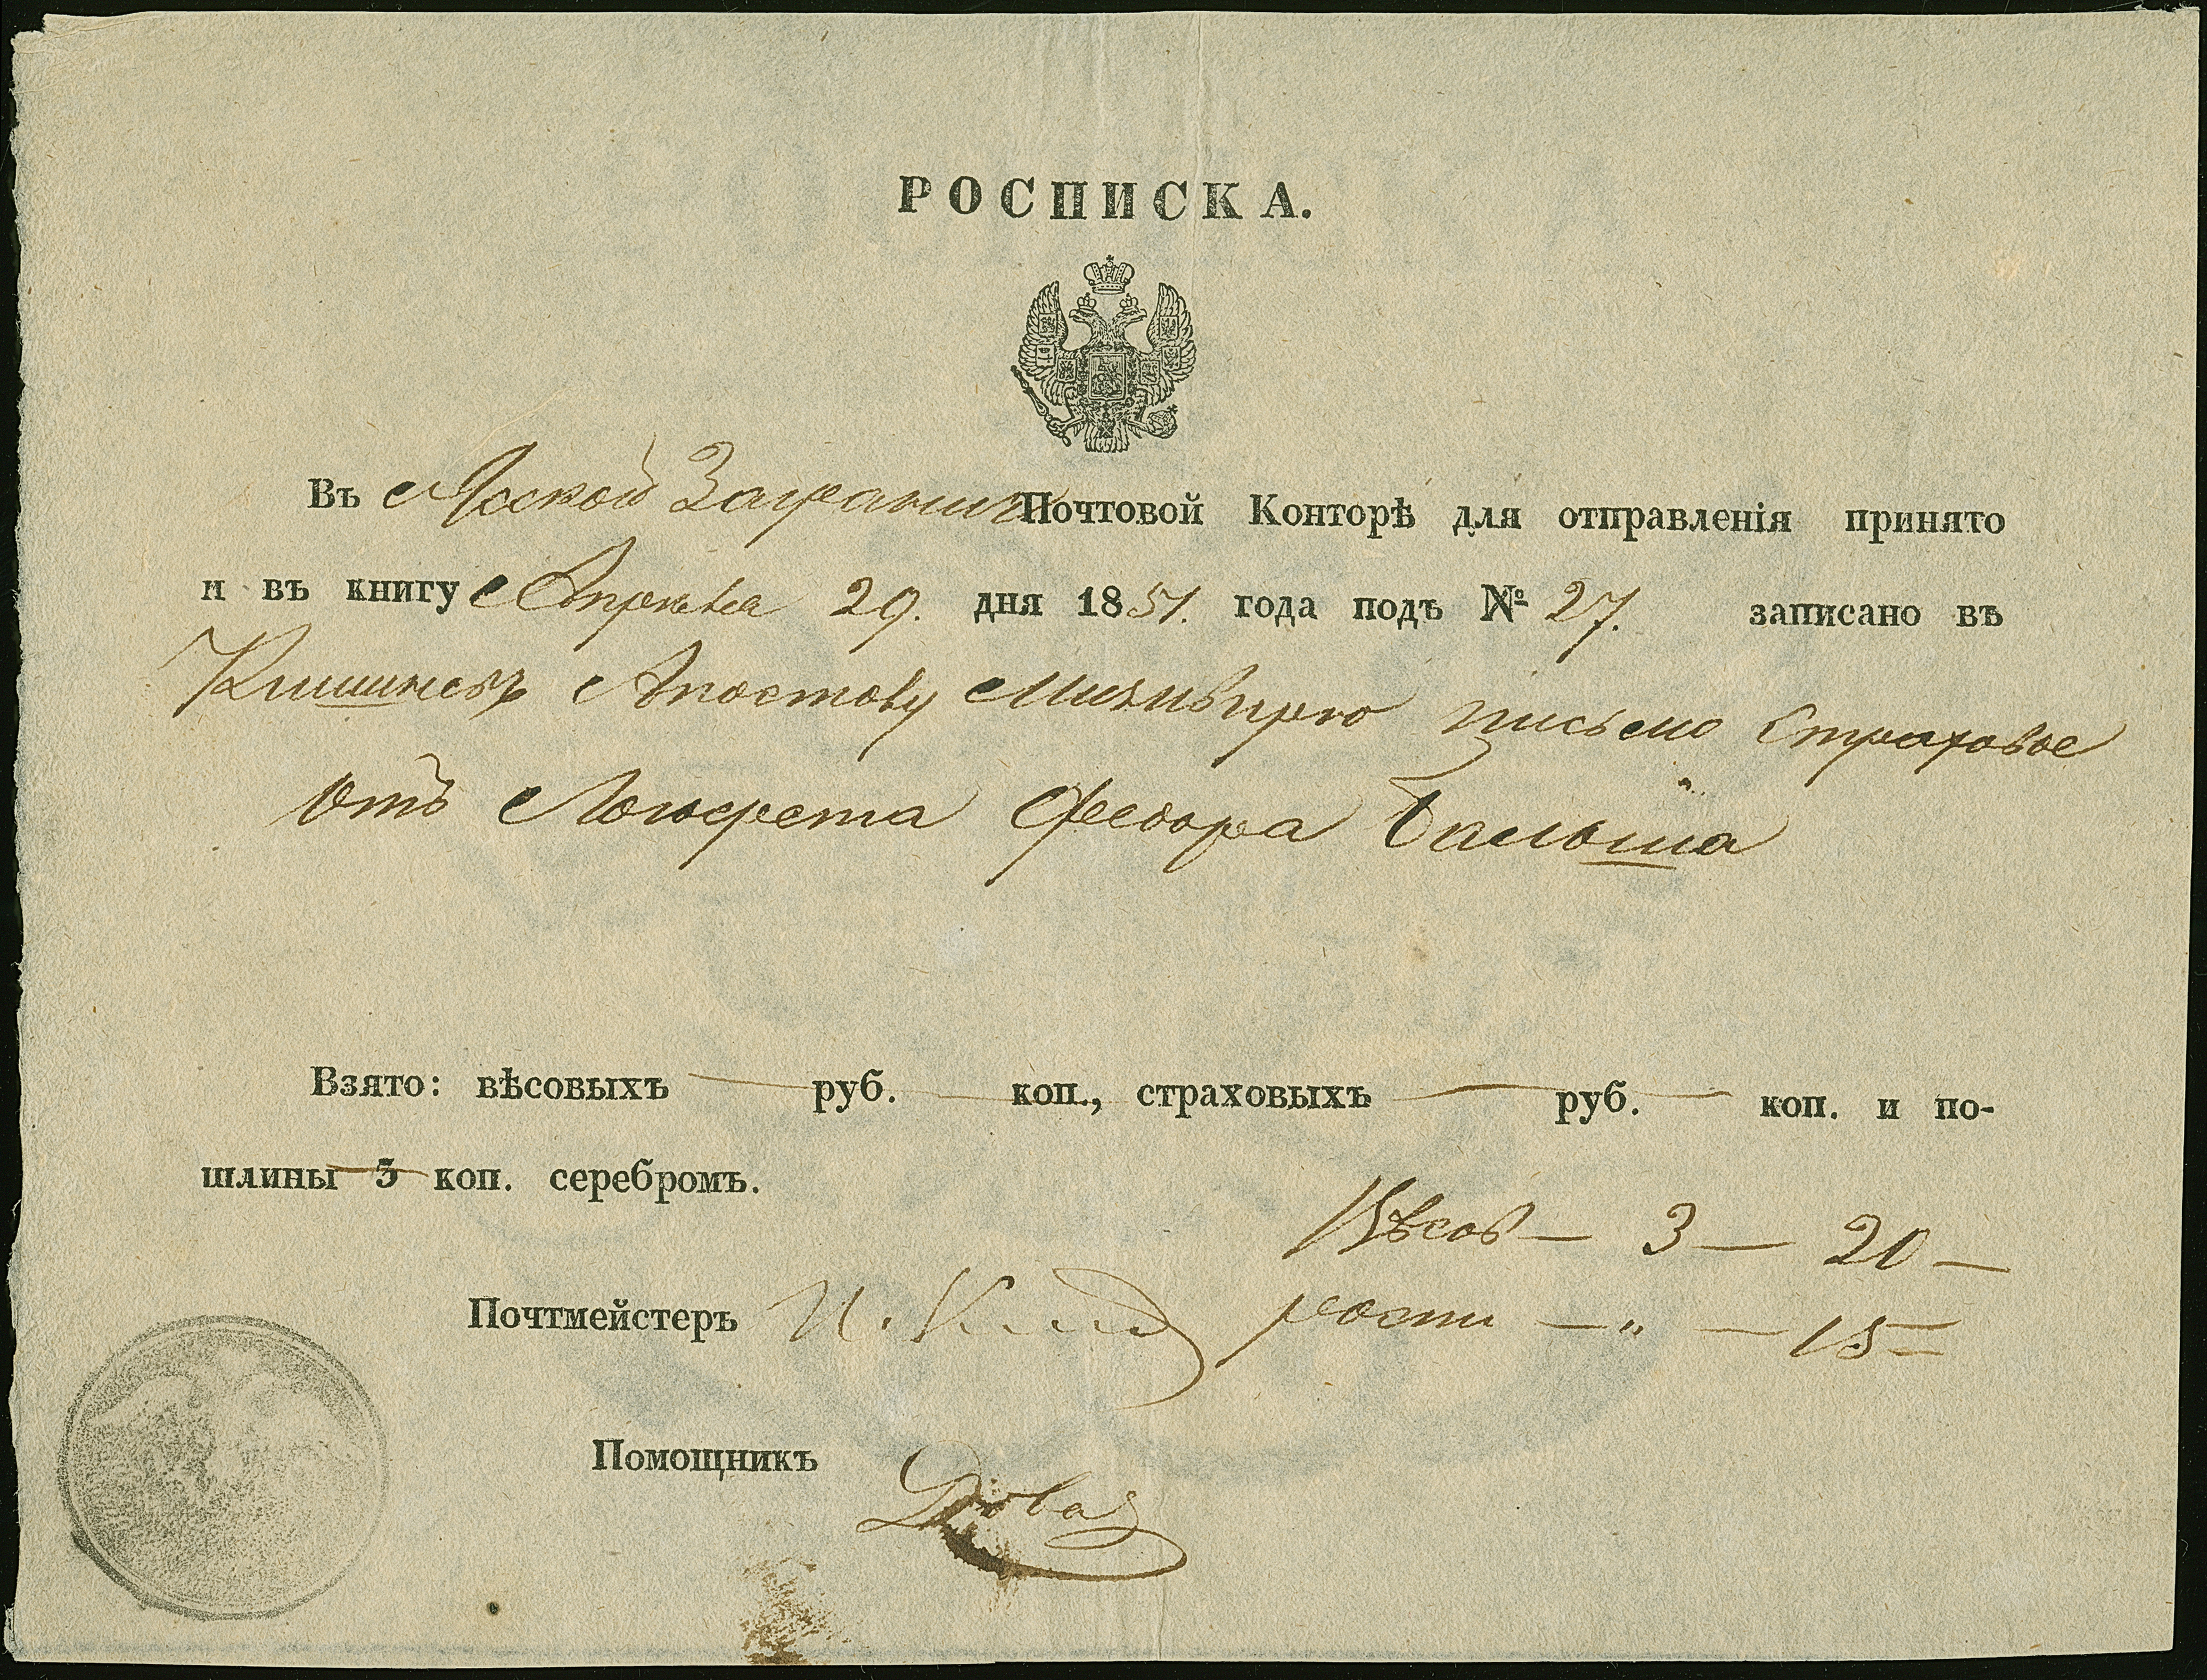 РОСПИСКА.
Въ Ясской Загранич Почтовой Конторѣ для отправленія принято
и въ книгу Апрѣля 29. дня 1851. года подъ № 27. записано въ
Кишиневъ Апостолу письмо Страховое
Отъ Логофета Федора Бальша
Взято: вѣсовыхъ — руб. — коп., страховыхъ — руб. — коп. и по-
шлины 5 коп. серебромъ.
Вѣсов — 3 — 20 —
Почтмейстеръ
роспи — „ — 15 —
Помощникъ